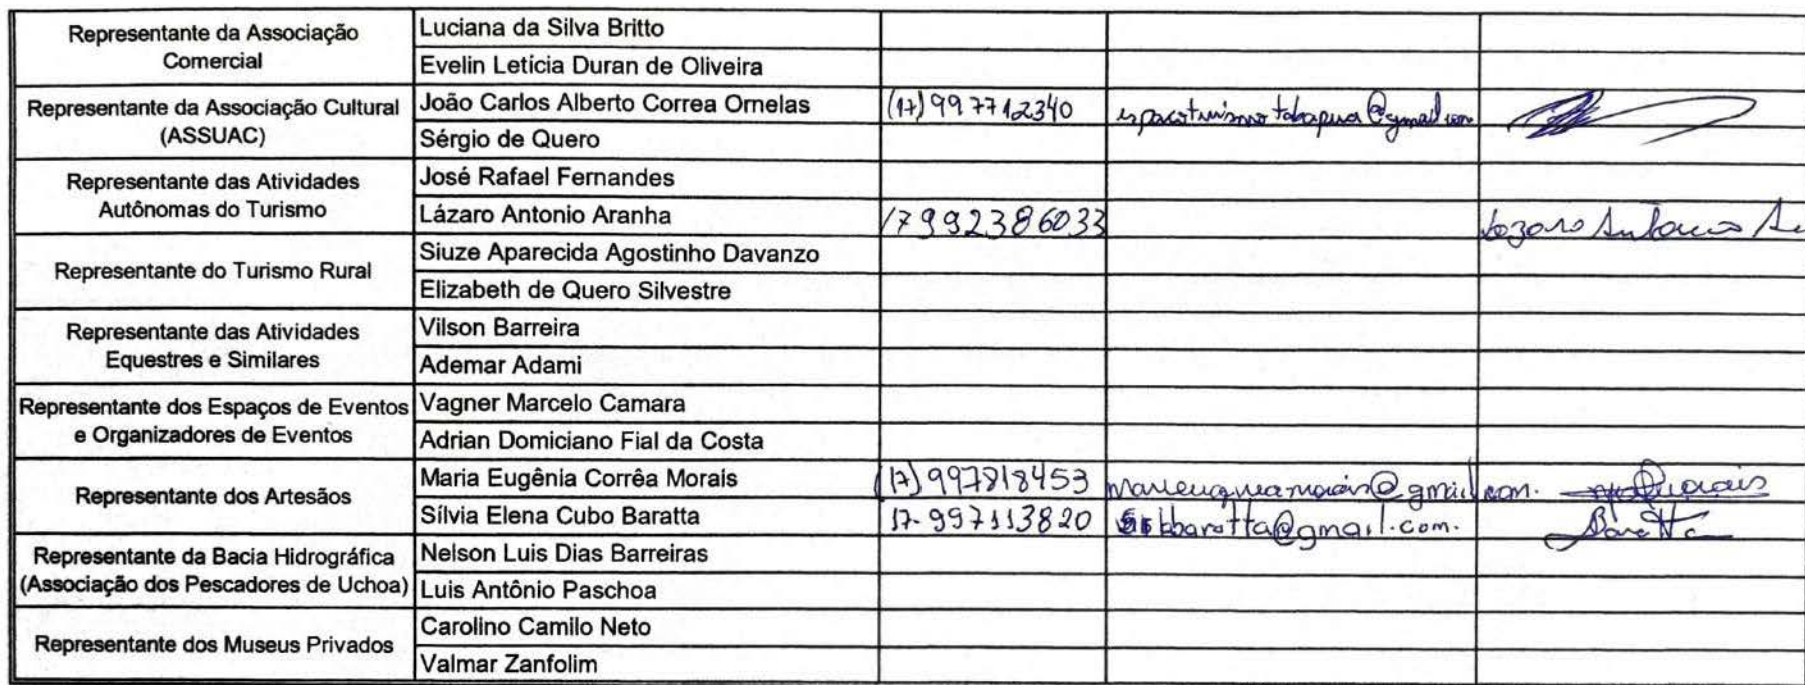 Representante da Associação
Comercial
Luciana da Silva Britto
Evelin Letícia Duran de Oliveira
Representante da Associação Cultural
(ASSUAC)
João Carlos Alberto Correa Ornelas (17) 997712340 espacoturismotabapua@gmail.com
Sérgio de Quero
Representante das Atividades
Autônomas do Turismo
José Rafael Fernandes
Lázaro Antonio Aranha 17992386033 Lazaro Antonio
Representante do Turismo Rural
Siuze Aparecida Agostinho Davanzo
Elizabeth de Quero Silvestre
Representante das Atividades
Equestres e Similares
Vilson Barreira
Ademar Adami
Representante dos Espaços de Eventos
e Organizadores de Eventos
Vagner Marcelo Camara
Adrian Domiciano Fial da Costa
Representante dos Artesãos
Maria Eugênia Corrêa Morais (17) 997818453
Sílvia Elena Cubo Baratta 17-997113820 Baratta
Representante da Bacia Hidrográfica
(Associação dos Pescadores de Uchoa)
Nelson Luis Dias Barreiras
Luis Antônio Paschoa
Representante dos Museus Privados
Carolino Camilo Neto
Valmar Zanfolim